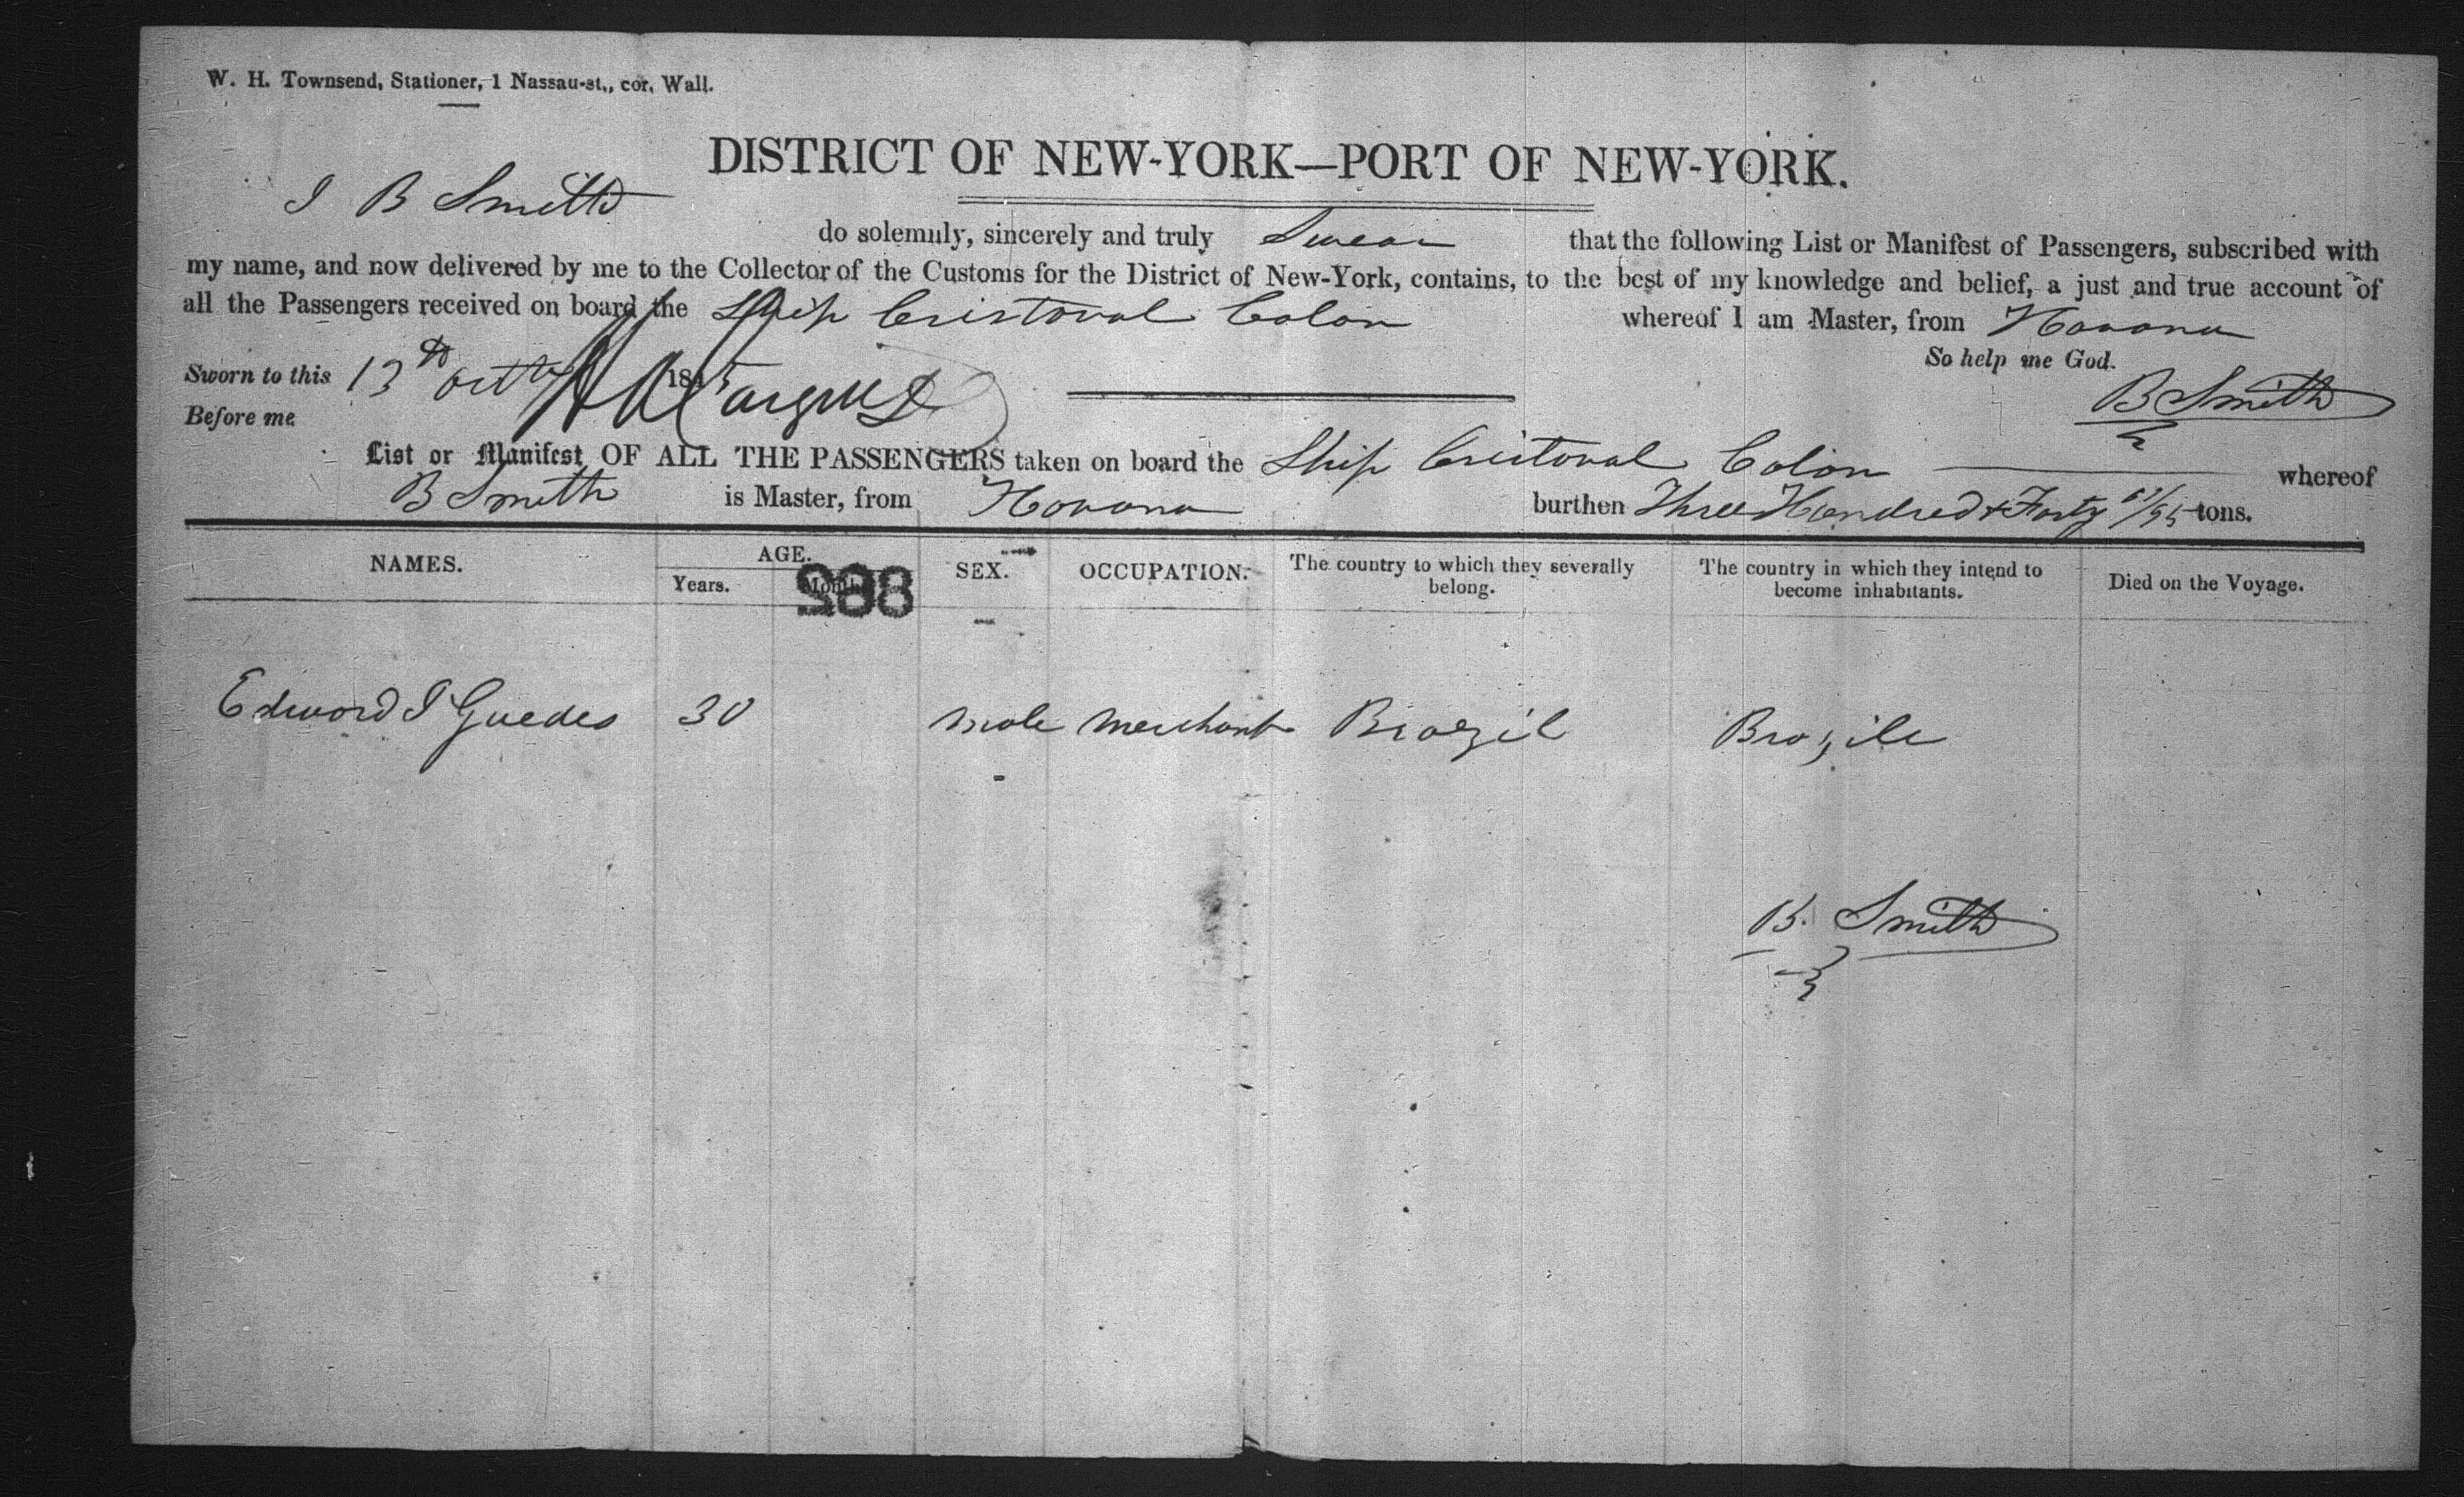 W. H. Townsend, Stationer, 1 Nassau-st., cor. Wall.
DISTRICT OF NEW-YORK—PORT OF NEW-YORK.
I B Smith do solemnly, sincerely and truly Swear that the following List or Manifest of Passengers, subscribed with
my name, and now delivered by me to the Collector of the Customs for the District of New-York, contains, to the best of my knowledge and belief, a just and true account of
all the Passengers received on board the Ship Cristoval Colon whereof I am Master, from Havana
So help me God.
Sworn to this 13th Octbr 184
B Smith
Before me
List or Manifest OF ALL THE PASSENGERS taken on board the Ship Cristoval Colon whereof
B Smith is Master, from Havana burthen Three Hundred & Forty /95 tons.
NAMES. AGE. SEX. OCCUPATION. The country to which they severally belong. The country in which they intend to become inhabitants. Died on the Voyage.
Years. Months
288
Edward I Guedes 30 male merchant Brazil Brazile
B. Smith